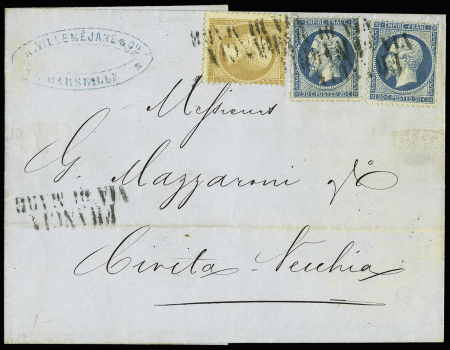 VILLEMÉJANE & Cie
MARSEILLE
EMPIRE FRANC.
20 C. POSTES 20 C.
EMPIRE FRANC.
20 C. POSTES 20 C.
Messieurs
G. Mazzaroni & Co
Civita-Vecchia
FRANCIA
VIA DI MARE